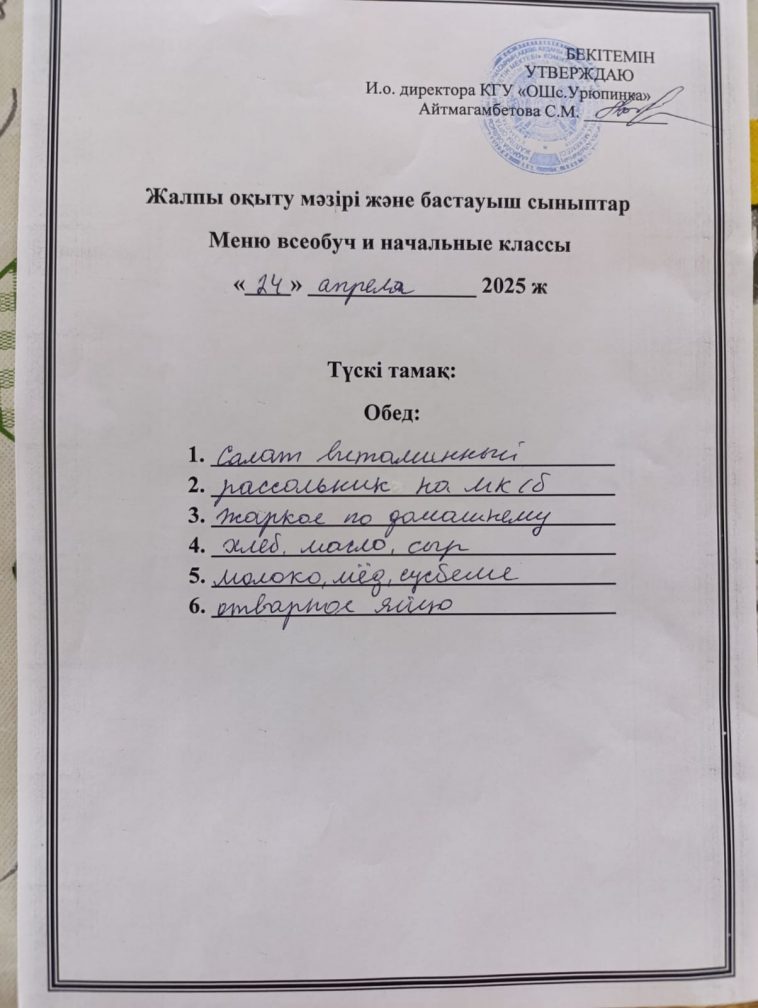 БЕКІТЕМІН
УТВЕРЖДАЮ
И.о. директора КГУ «ОШс.Урюпинка»
Айтмагамбетова С.М.
Жалпы оқыту мәзірі және бастауыш сыныптар
Меню всеобуч и начальные классы
«24» апреля 2025 ж
Түскі тамақ:
Обед:
1. Салат витаминный
2. рассольник на мк/б
3. жаркое по домашнему
4. хлеб, масло, сыр
5. молоко, мёд, сузбеше
6. отварное яйцо